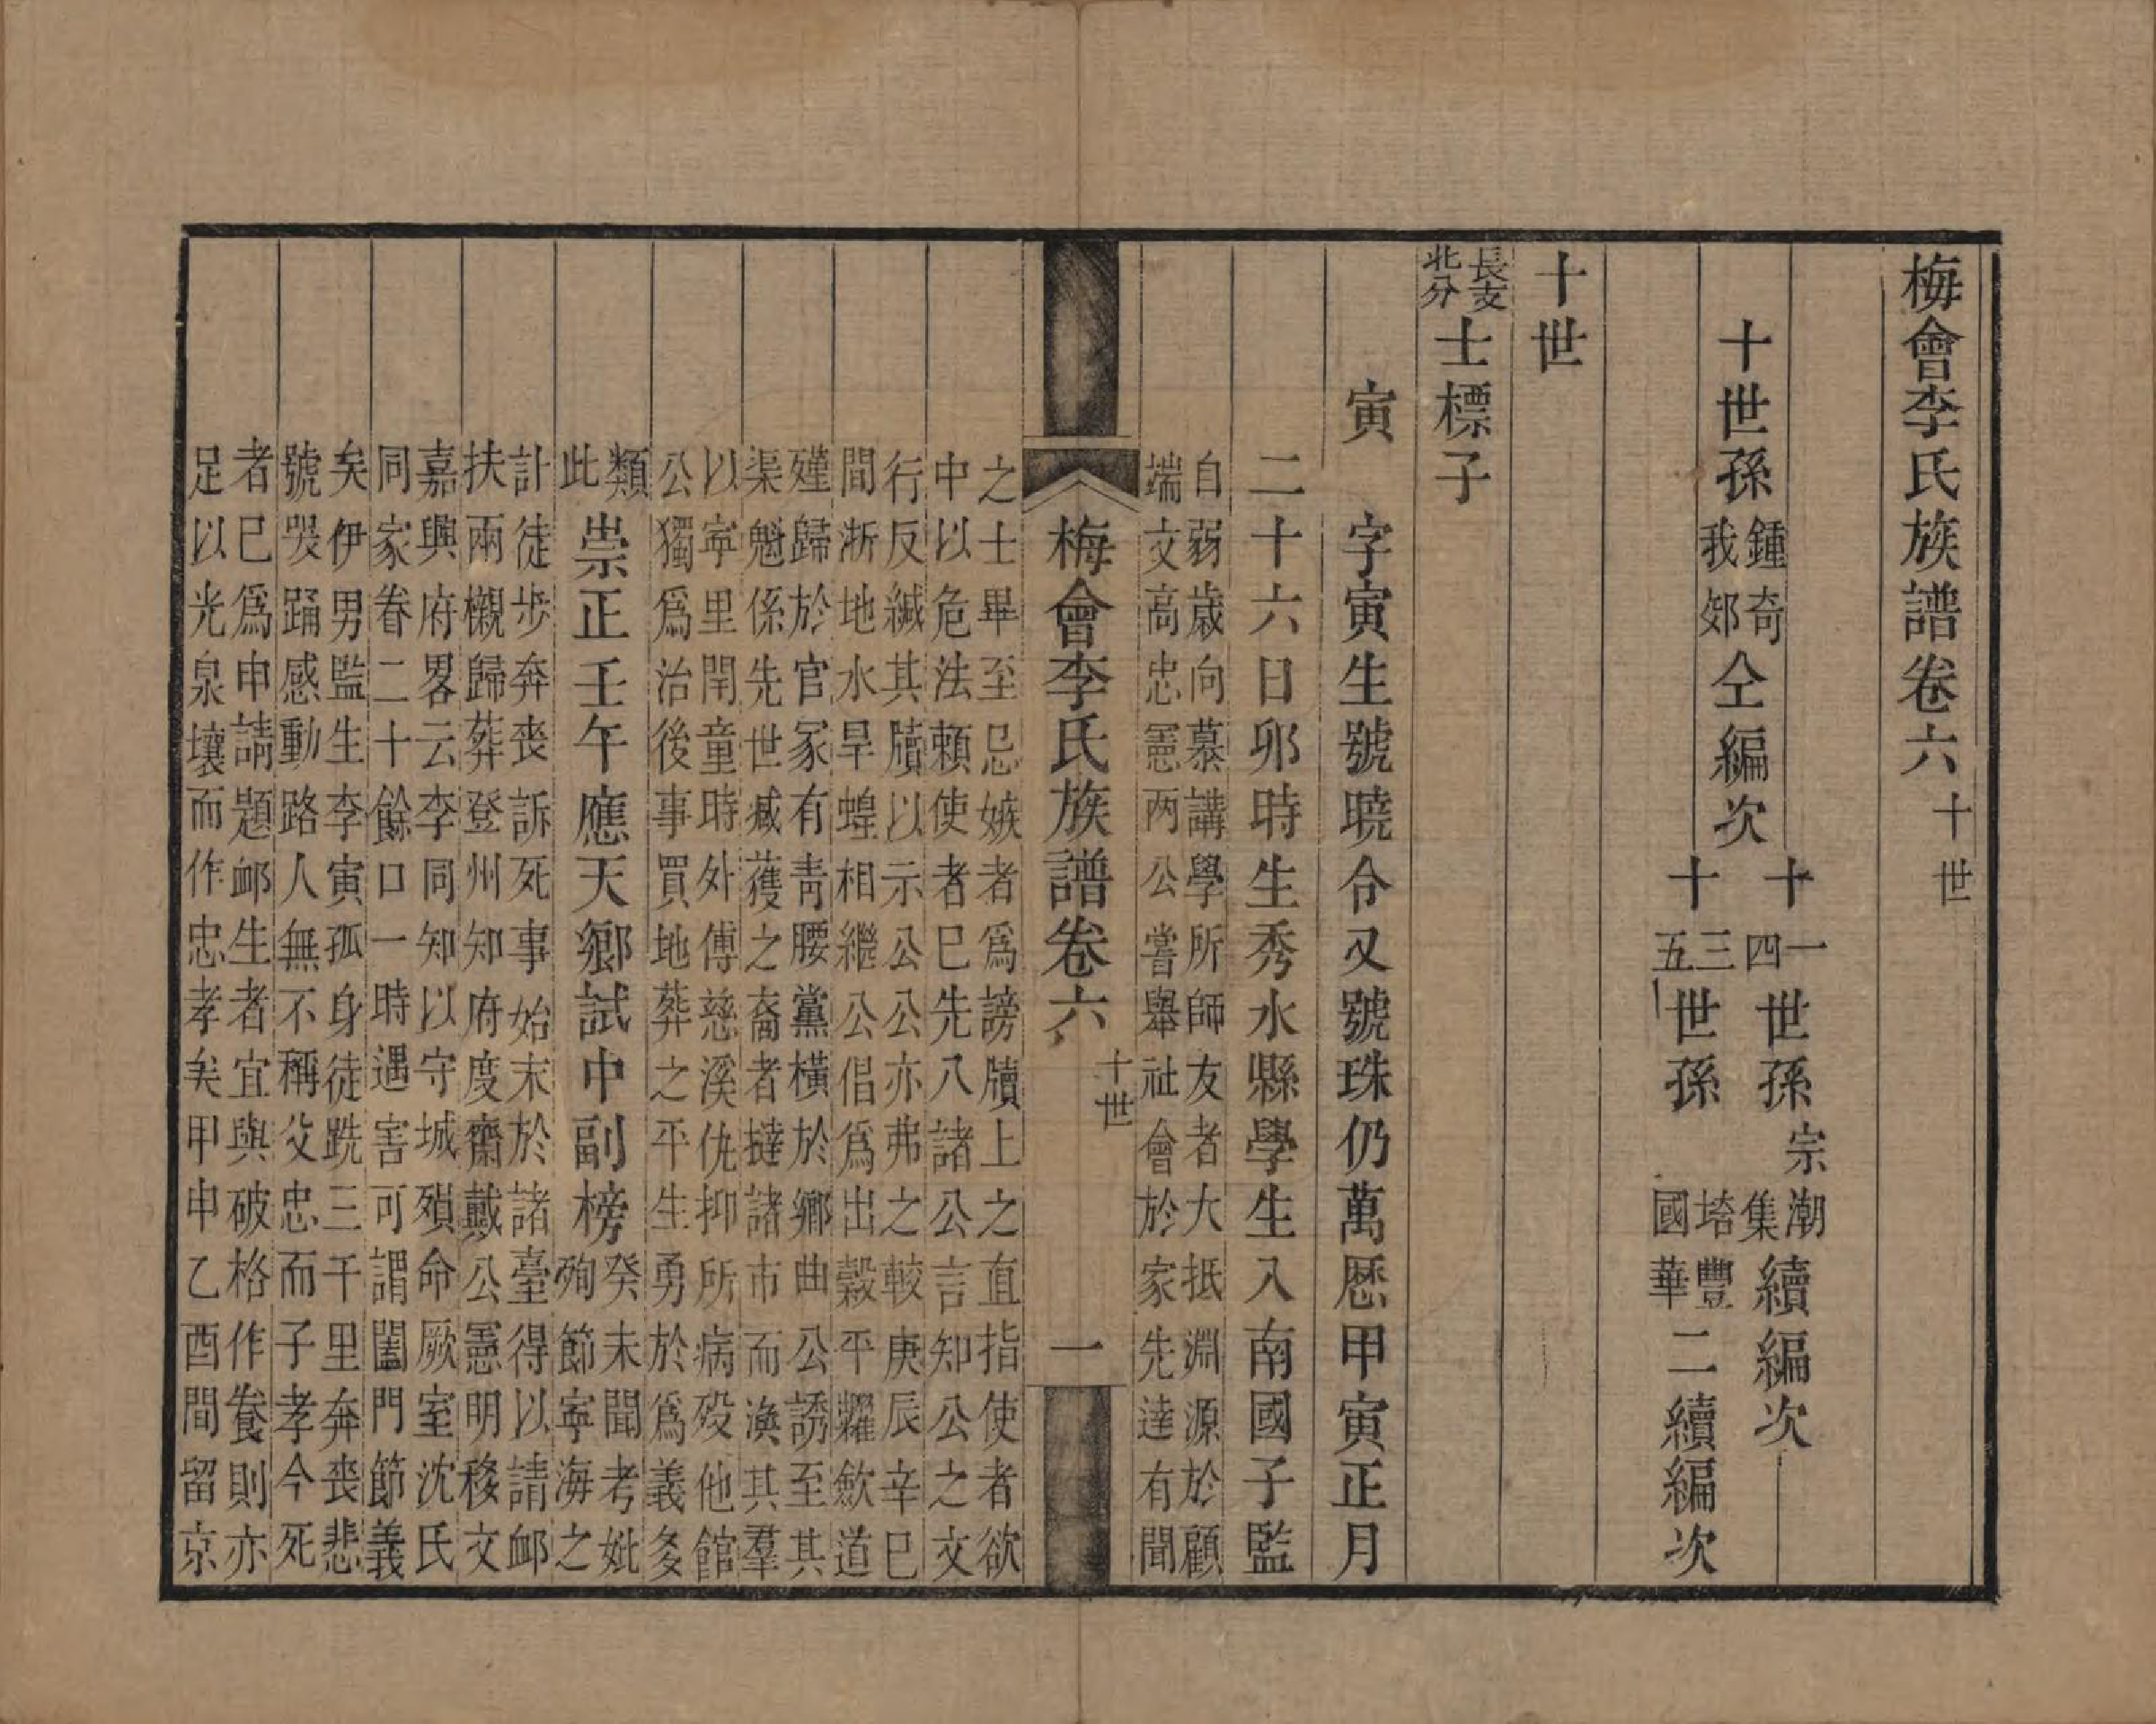 梅會李氏族譜卷六 十世
十世孫 鍾奇 我郊 仝編次
十一四世孫 宗潮集 續編次
十三五世孫 㙮豐 國華 二續編次
十世
長支北分 士標子
寅 字寅生號曉令又號珠仍萬厯甲寅正月
二十六日卯時生秀水縣學生入南國子監
自弱歲向慕講學所師友者大抵淵源於顧
端文高忠憲两公嘗舉社會於家先達有聞
梅會李氏族譜卷六 十世 一
之士畢至忌嫉者爲謗牘上之直指使者欲
中以危法賴使者巳先入諸公言知公之文
行反緘其牘以示公公亦弗之較庚辰辛巳
間浙地水旱蝗相繼公倡爲出穀平糶歛道
殣歸於官冢有靑腰黨橫於鄉曲公誘至其
渠魁係先世臧獲之裔者撻諸市而渙其羣
以寧里閈童時外傅慈溪仇抑所病殁他館
公獨爲治後事買地葬之平生勇於爲義多
類
此 崇正壬午應天鄉試中副榜 癸未聞考妣
殉節寧海之
計徒步奔喪訴死事始末於諸臺得以請邮
扶兩櫬歸葬登州知府度齋戴公憲明移文
嘉興府畧云李同知以守城殞命厥室沈氏
同家眷二十餘口一時遇害可謂闔門節義
矣伊男監生李寅孤身徒跣三千里奔喪悲
號哭踊感動路人無不稱父忠而子孝今死
者巳爲申請題邮生者宜與破格作養則亦
足以光泉壤而作忠孝矣甲申乙酉間留京